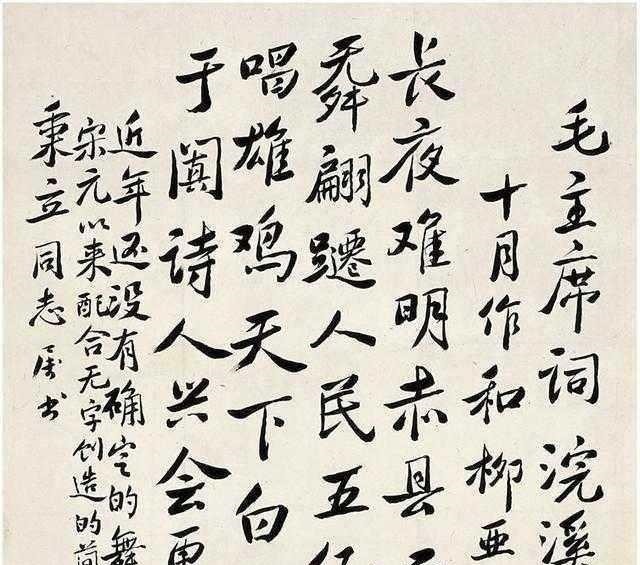 毛主席词浣溪
十月作和柳亚
长夜难明赤县
舞翩跹人民五
唱雄鸡天下白
于阗诗人兴会更
近年还没有确定的舞
宋元以来配合无字创造的简
秉立同志属书